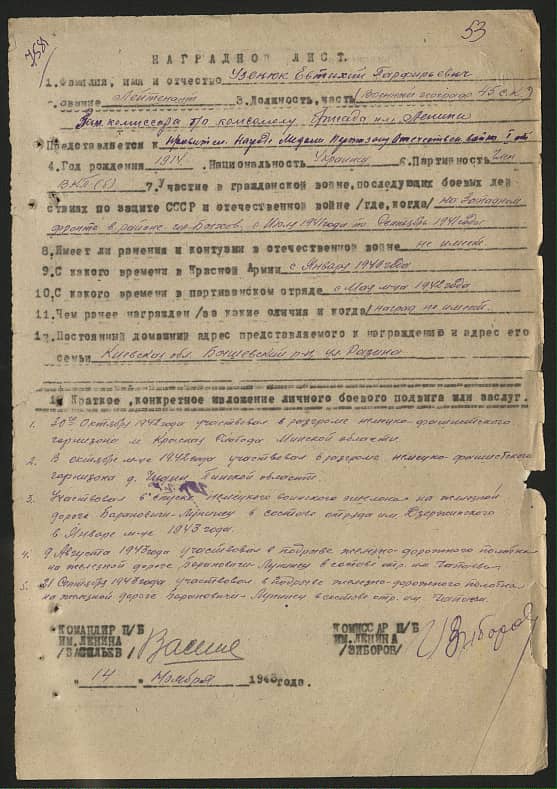 53
758
НАГРАДНОЙ ЛИСТ.
1. Фамилия, имя и отчество Узенюк Евтихий Парфирьевич
2. звание Лейтенант 3. Должность, часть
Зам. комиссара по комсомолу им. Ленина
Представляется к Правител. Награде Медали Партизану Отечествен. войны I ст
4. Год рождения 1914 .Национальность Украинец 6. Партийность член
ВКП(б) 7. Участие в гражданской войне, последующих боевых дей
ствиях по защите СССР и отечественной войне /где, когда/ на Западном
фронте в районе с Июля 1941 года по Октябрь 1941 года
8. Имеет ли ранения и контузии в отечественной войне не имеет
9. С какого времени в Красной Армии с Января 1940 года
10. С какого времени в партизанском отряде с Мая м-ца 1942 года
11. Чем ранее награжден /за какие отличия и когда/ наград не имеет.
12. Постоянный домашний адрес представляемого к награждению и адрес его
семьи Киевская обл. р-н,
13 Краткое, конкретное изложение личного боевого подвига или заслуг.
1. Октября 1942 года участвовал в разгроме немецко-фашистского
гарнизона м. Красная Слобода Минской области.
2. В октябре м-це 1942 года участвовал в разгроме немецко-фашистского
гарнизона д. Пинской области.
3. Участвовал в спуске немецкого воинского эшелона на железной
дороге Барановичи-Лунинец в составе отряда им. Дзержинского
в Январе м-це 1943 года.
4. 9 Августа 1943 года участвовал в подрыве железно-дорожного полотна
на железной дороге Барановичи-Лунинец в составе отр. им. Чапаева.
5. 21 Сентября 1943 года участвовал в подрыве железно-дорожного полотна
на железной дороге Барановичи-Лунинец в составе отр. им. Чапаева.
КОМАНДИР П/Б
ИМ. ЛЕНИНА
/ВАСИЛЬЕВ/
КОМИССАР П/Б
ИМ. ЛЕНИНА
/ЗИБОРОВ/
" 14 " Ноября 1943 года.